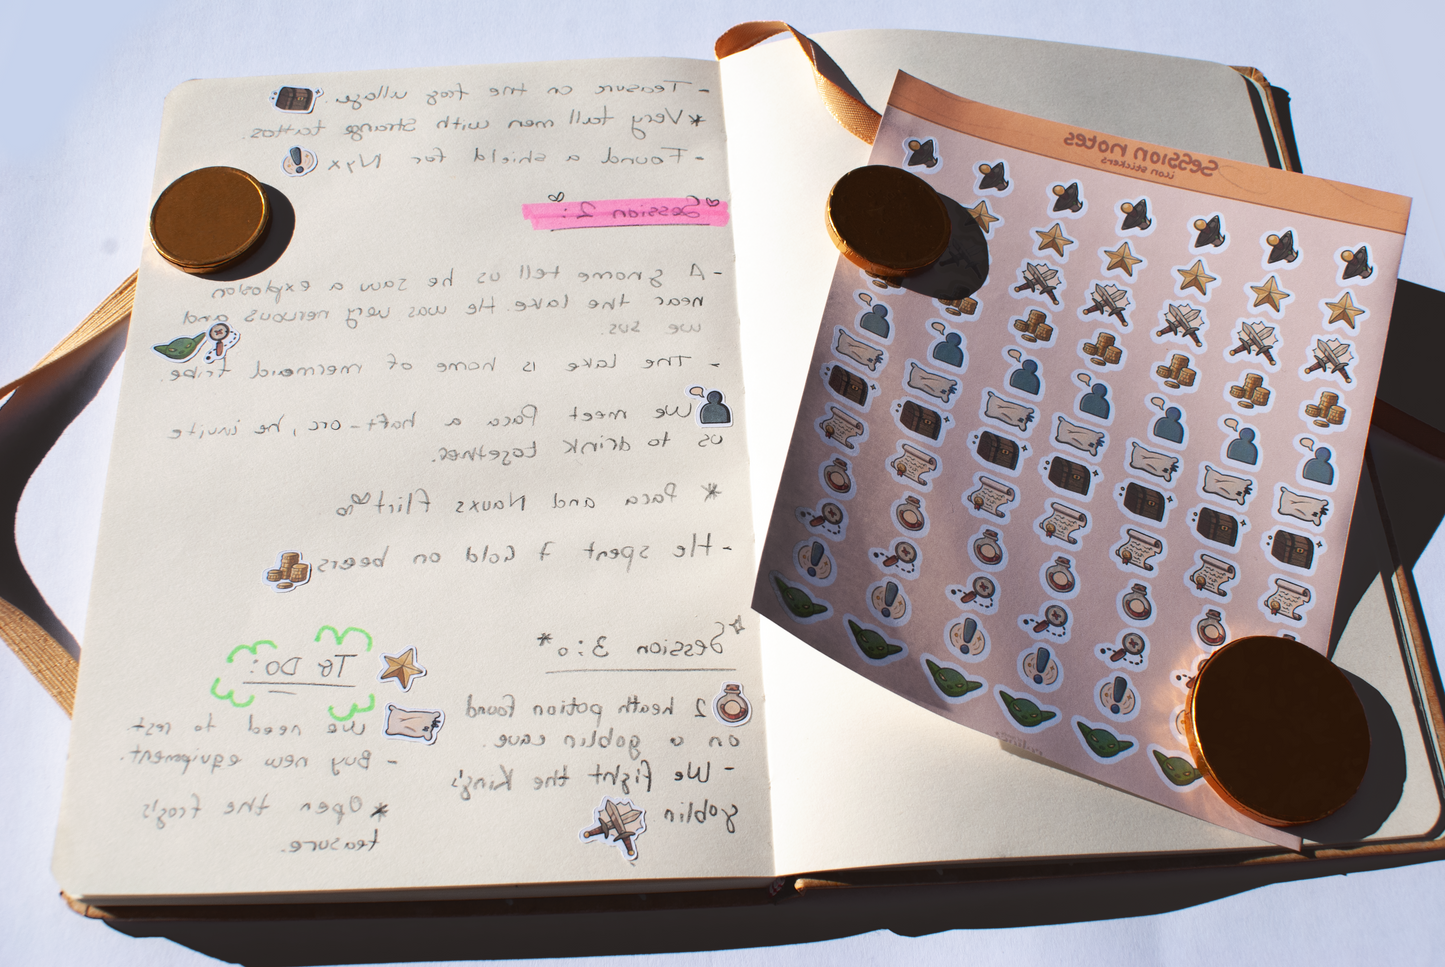 - Treasure on the frog village.
* Very tall men with strange tattos.
- Found a shield for Nyx
Session 2:
- A gnome tell us he saw a explosion
near the lake. He was very nervous and
we sus.
- The lake is home of mermaid tribe.
We meet Paca a haft-orc, he invite
us to drink together.
* Paca and Nauxs flirt
- He spent 7 Gold on beers
Session 3:
2 heath potion found
on a goblin cave.
- We fight the King's
goblin
To Do:
We need to rest
- Buy new equipment.
* Open the frog's
teasure.
Session notes
icon stickers